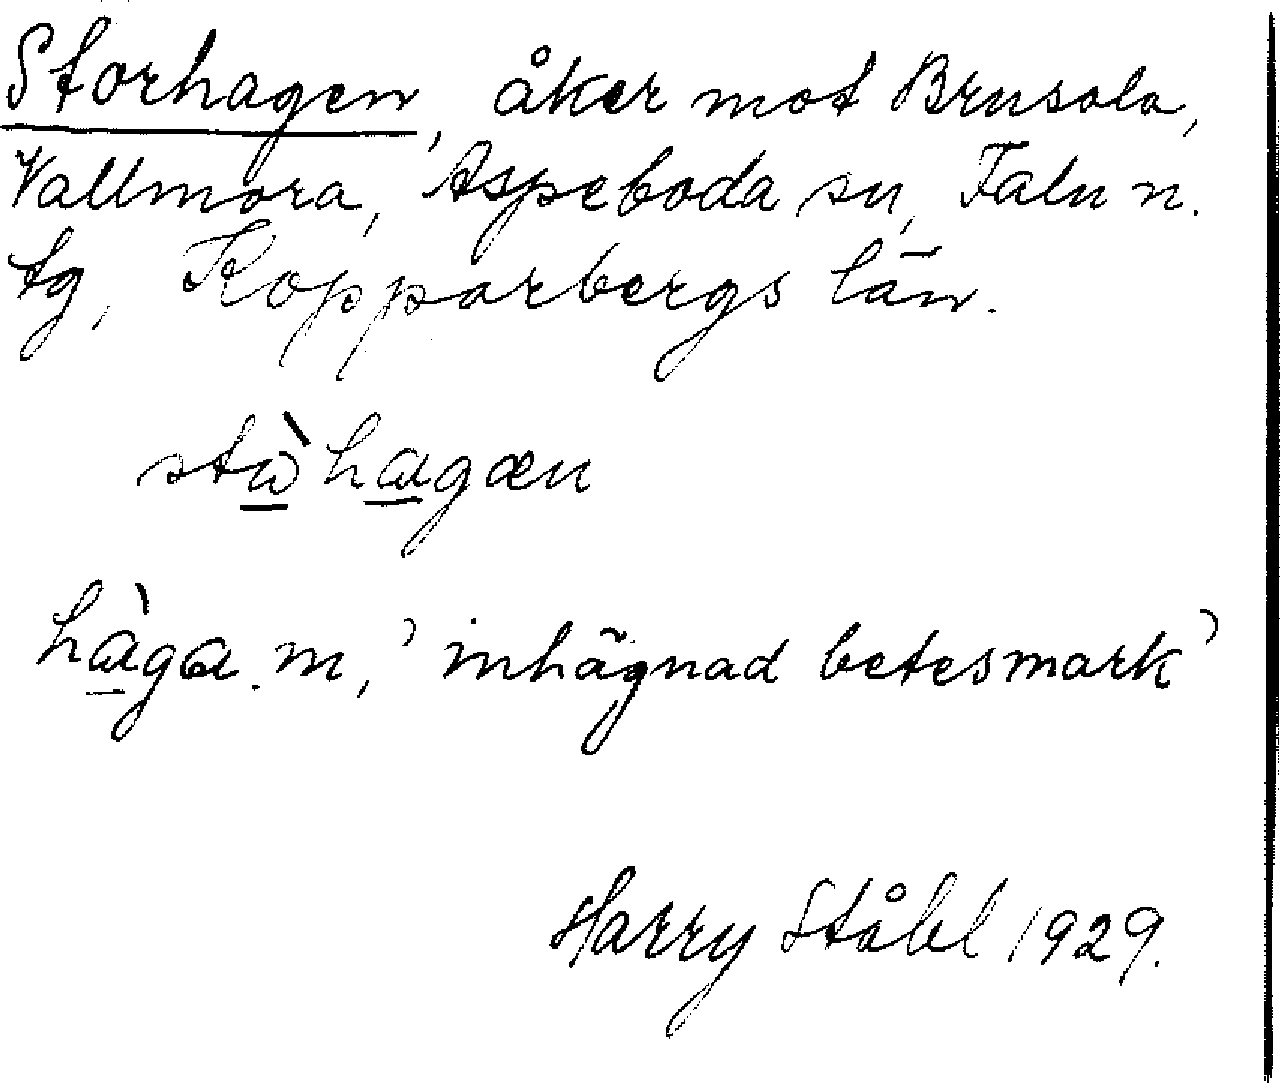 Storhagen, åker mot Brusala,
Vallmora, Aspeboda sn, Falu n.
tg, Kopparbergs län.
stàhagæn
hàga. m, 'inhägnad betesmark'
Harry Ståhl 1929.